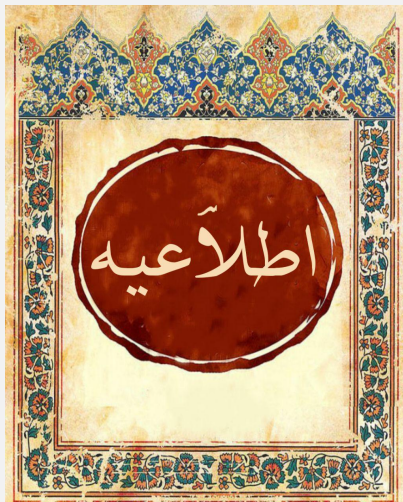 اطلاّعیه